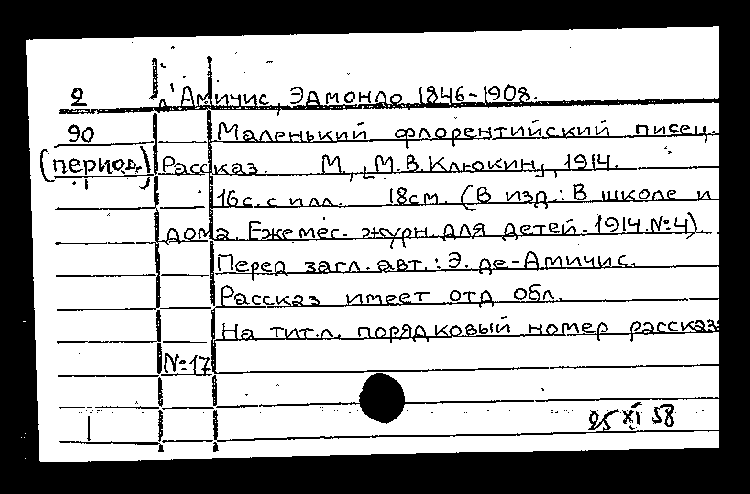 2 Амичис, Эдмондо, 1846-1908.
90 Маленький флорентийский писец.
(период.) Рассказ. М., [М.В. Клюкин], 1914.
16 с. с илл. 18 см. (В изд.: В школе и
дома. Ежемес. журн. для детей. 1914. №4)
Перед загл. авт.: Э. де-Амичис.
Рассказ имеет отд обл.
На тит.л. порядковый номер рассказа
№17
25 XI 58